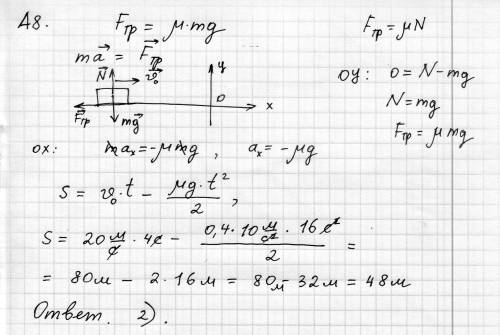 А8. Fтр = μ·mg
Fтр = μN
ma⃗ = F⃗тр
оу: 0 = N - mg
N⃗ v⃗₀ y
N = mg
0 x
F⃗тр mg⃗
Fтр = μmg
ох: maₓ = -μmg , aₓ = -μg
S = v₀·t - μg·t²/2 ,
S = 20 м/с · 4с - 0,4·10 м/с² · 16с²/2 =
= 80м - 2·16м = 80м - 32м = 48м
Ответ. 2).